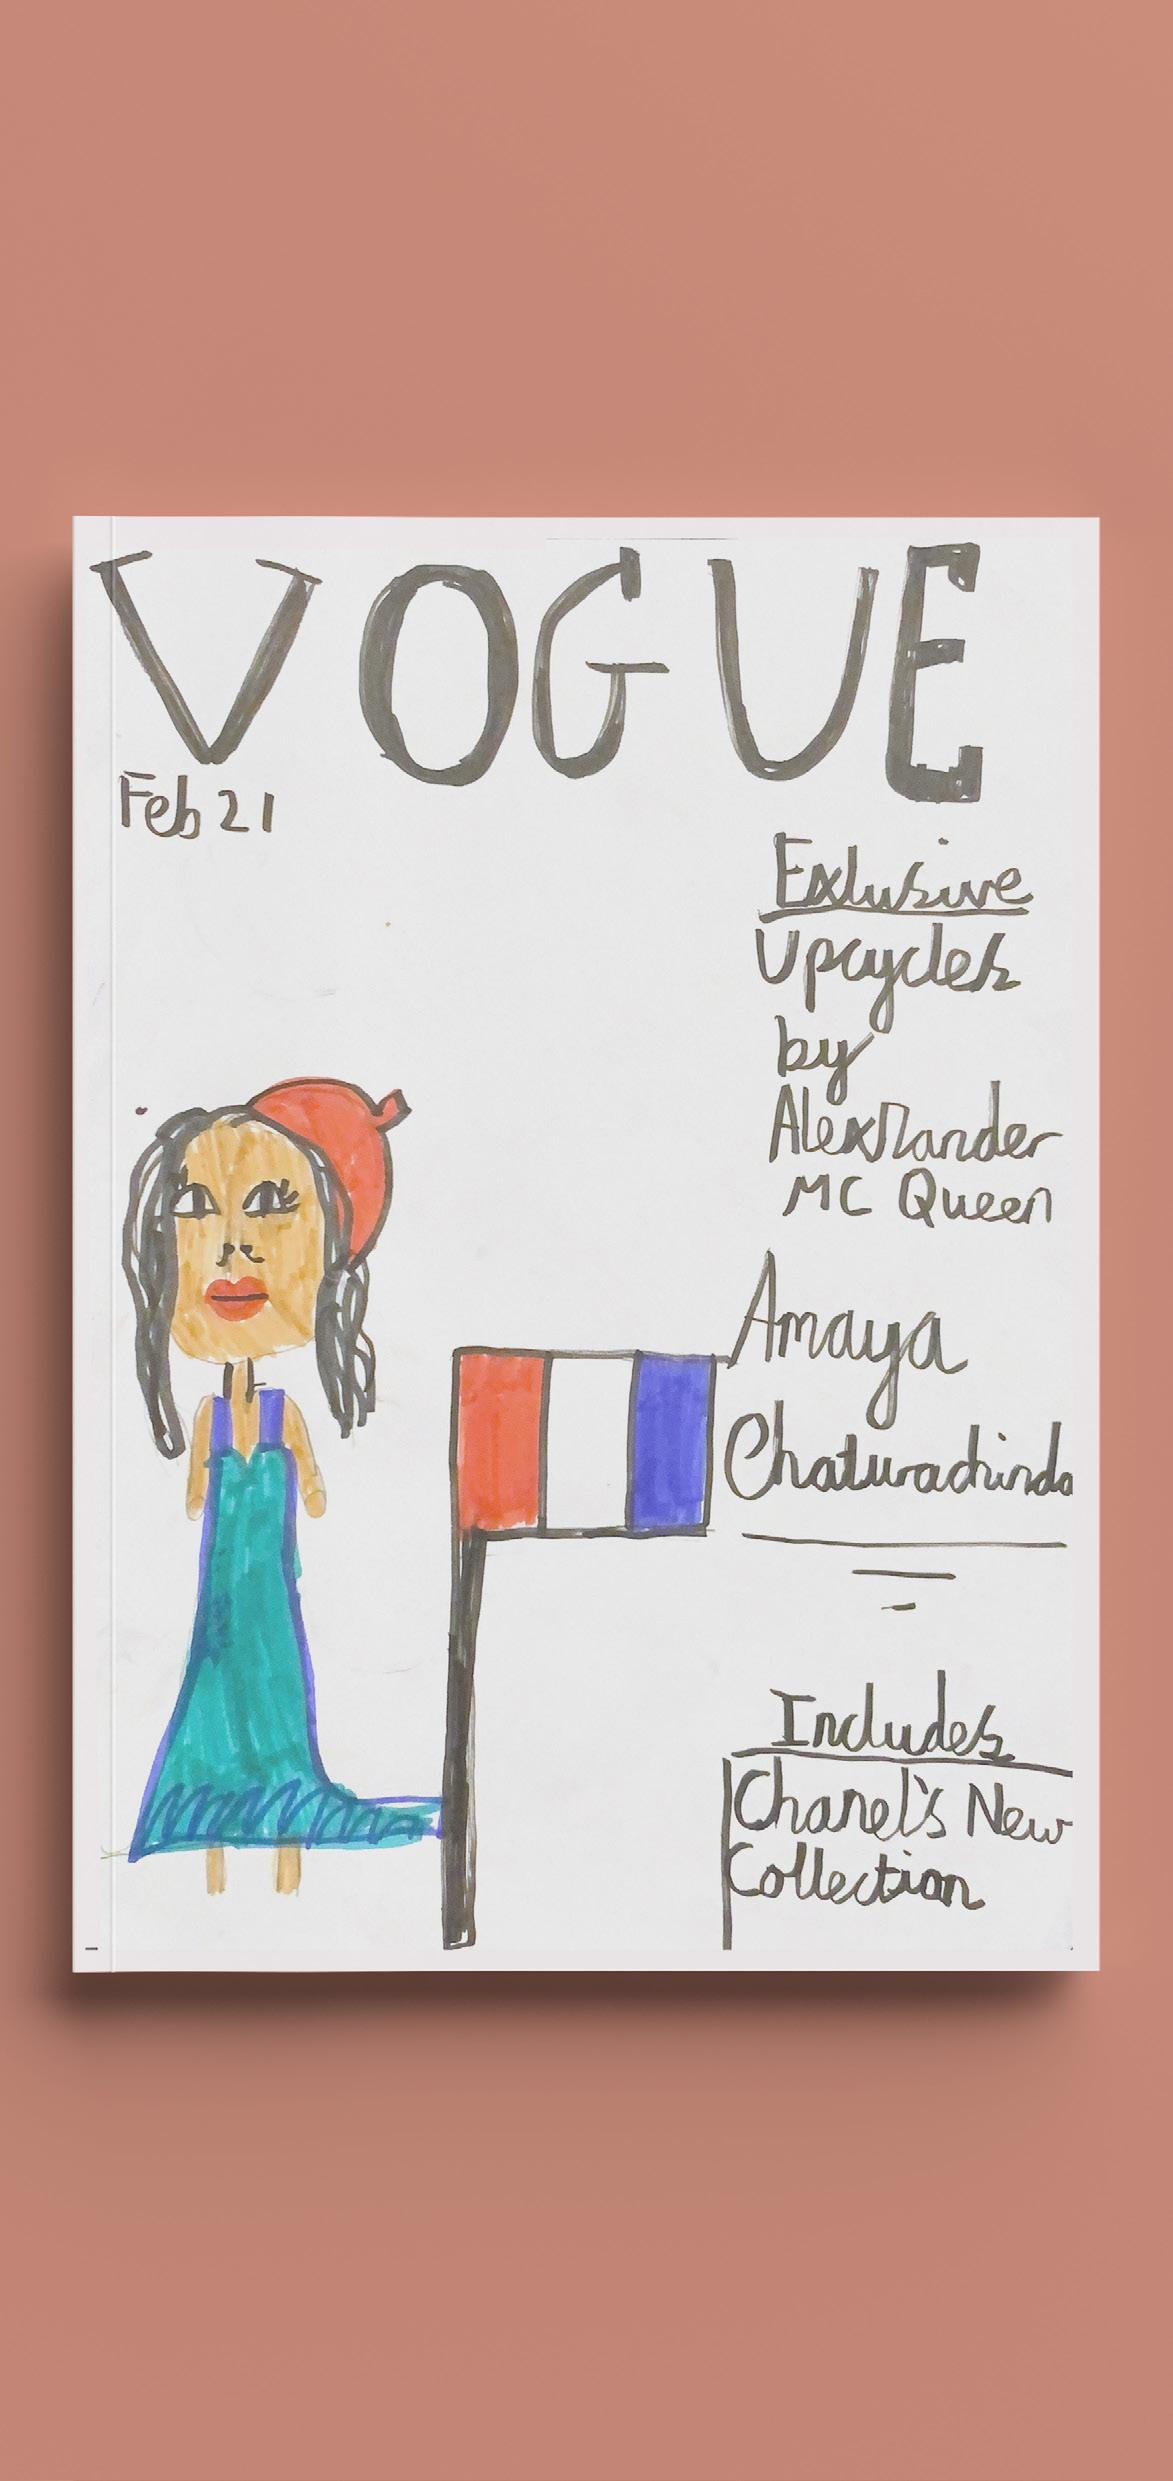 VOGUE
Feb 21
Exlusive
Upcycles
by
Alexander
MC Queen
Amaya
Includes
Chanel's New
Collection